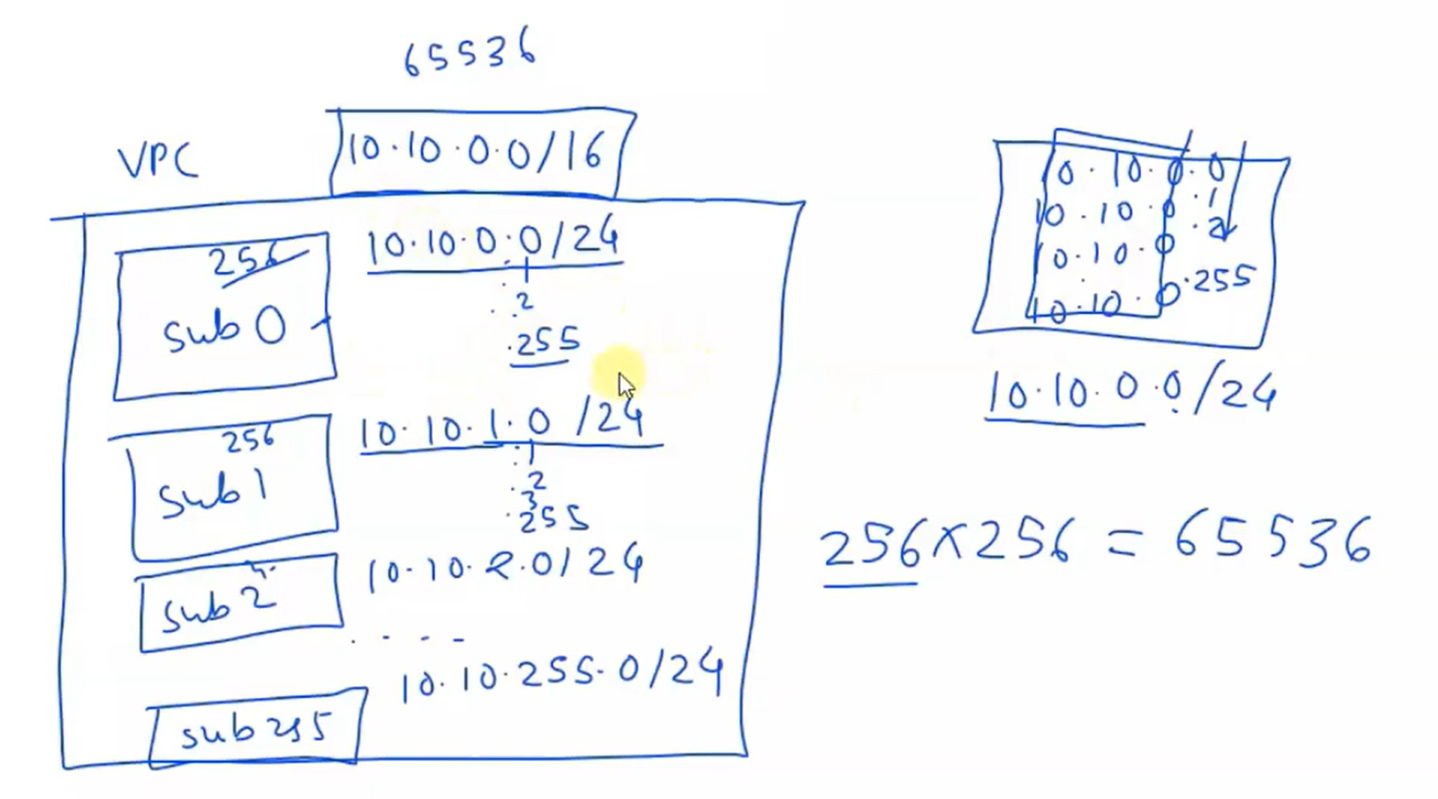 65536
VPC
10.10.0.0/16
256
sub 0
10.10.0.0/24
.1
.2
.255
256
sub 1
10.10.1.0 /24
.1
.2
.3
.255
sub 2
10.10.2.0/24
. . . .
10.10.255.0/24
sub 255
10.10.0.0
10.10.0.1
10.10.0.2
10.10.0.255
10.10.0.0/24
256×256 = 65536